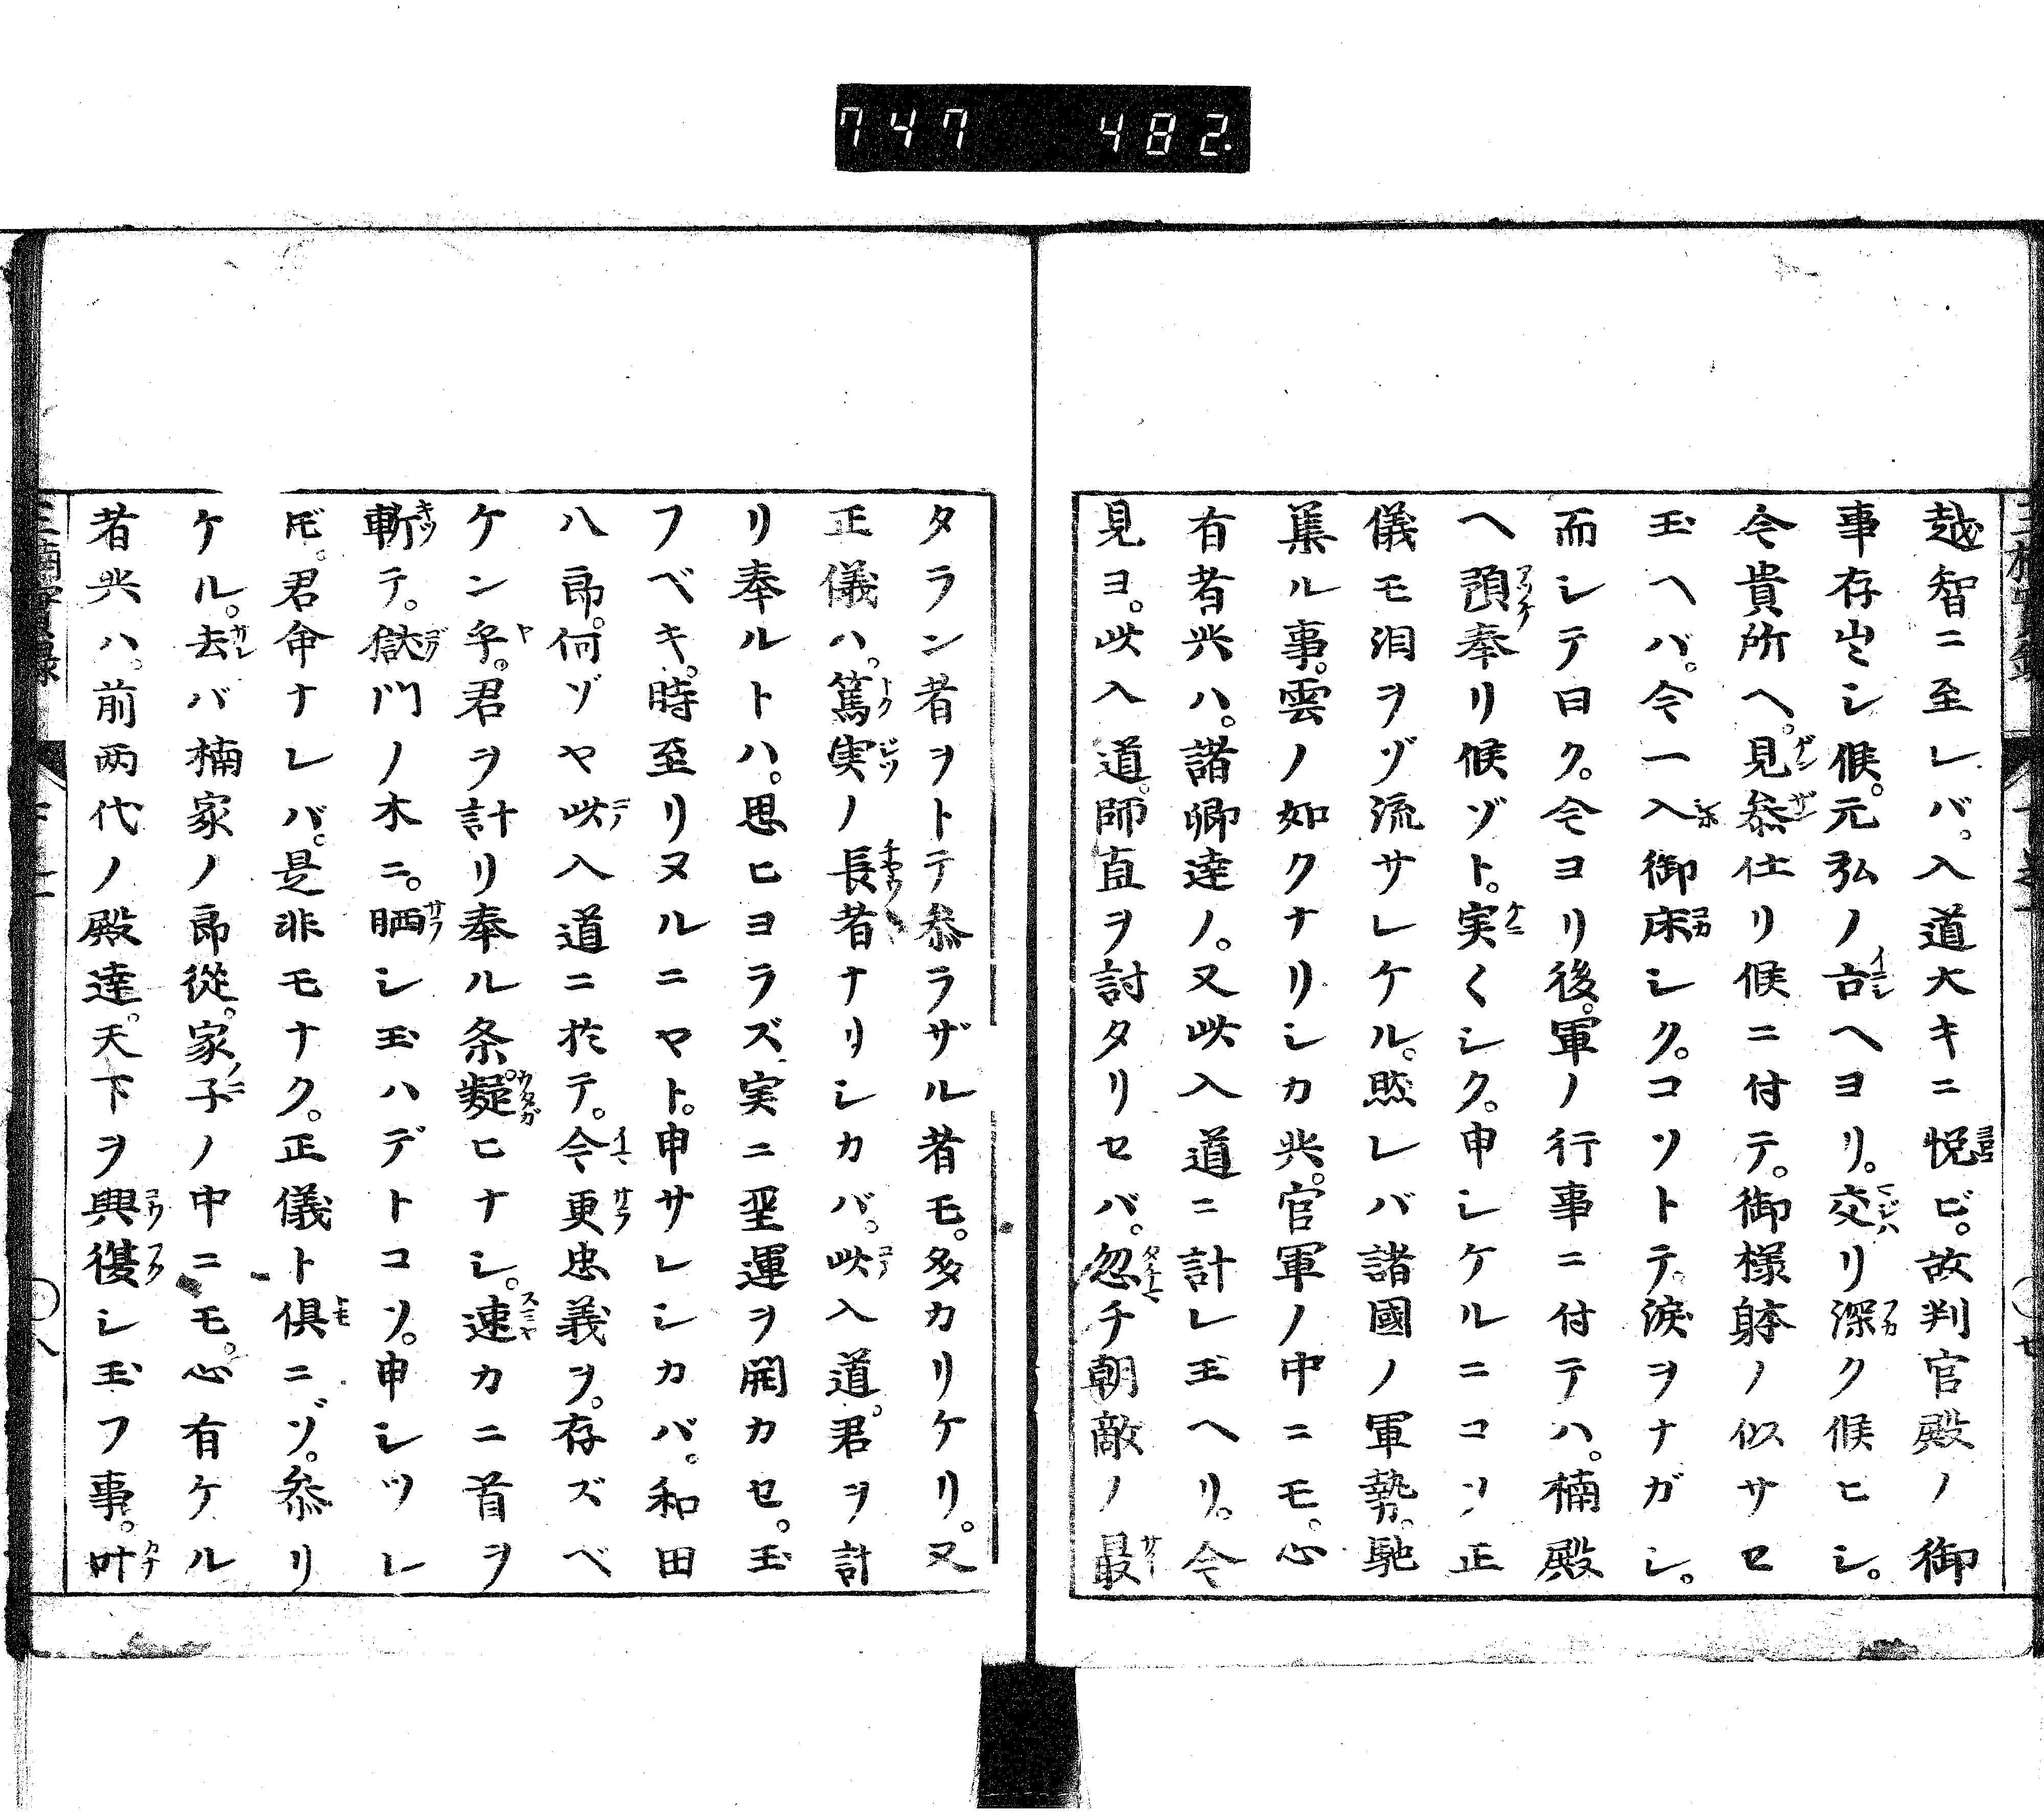 747 482.
越智ニ至レバ。入道大キニ悦ビ。故判官殿ノ御
事存出シ候。元弘ノ古ヘヨリ。交リ深ク候ヒシ。
今貴所ヘ。見参仕リ候ニ付テ。御様躰ノ似サセ
玉ヘバ。今一入御床シク。コソトテ。涙ヲナガシ。
而シテ曰ク。今ヨリ後。軍ノ行事ニ付テハ。楠殿
ヘ預奉リ候ゾト。実〱シク。申シケルニコソ正
儀モ泪ヲゾ流サレケル。然レバ諸國ノ軍勢。馳
集ル事。雲ノ如クナリシカ共。官軍ノ中ニモ。心
有者共ハ。諸卿達ノ。又此入道ニ計レ玉ヘリ。今
見ヨ。此入道。師直ヲ討タリセバ。忽チ朝敵ノ最
タラン者ヲトテ参ラザル者モ。多カリケリ。又
正儀ハ。篤実ノ長者ナリシカバ。此入道。君ヲ計
リ奉ルトハ。思ヒヨラズ実ニ聖運ヲ開カセ。玉
フベキ。時至リヌルニヤト。申サレシカバ。和田
八郎。何ゾヤ此入道ニ於テ。今更忠義ヲ。存ズベ
ケン乎。君ヲ計リ奉ル条。疑ヒナシ。速カニ首ヲ
斬テ。獄門ノ木ニ。晒シ玉ハデトコソ。申シツレ
𪜈。君命ナレバ。是非モナク。正儀ト倶ニゾ。参リ
ケル。去バ楠家ノ郎従。家子ノ中ニモ。心有ケル
者共ハ。前両代ノ殿達。天下ヲ興復シ玉フ事。叶